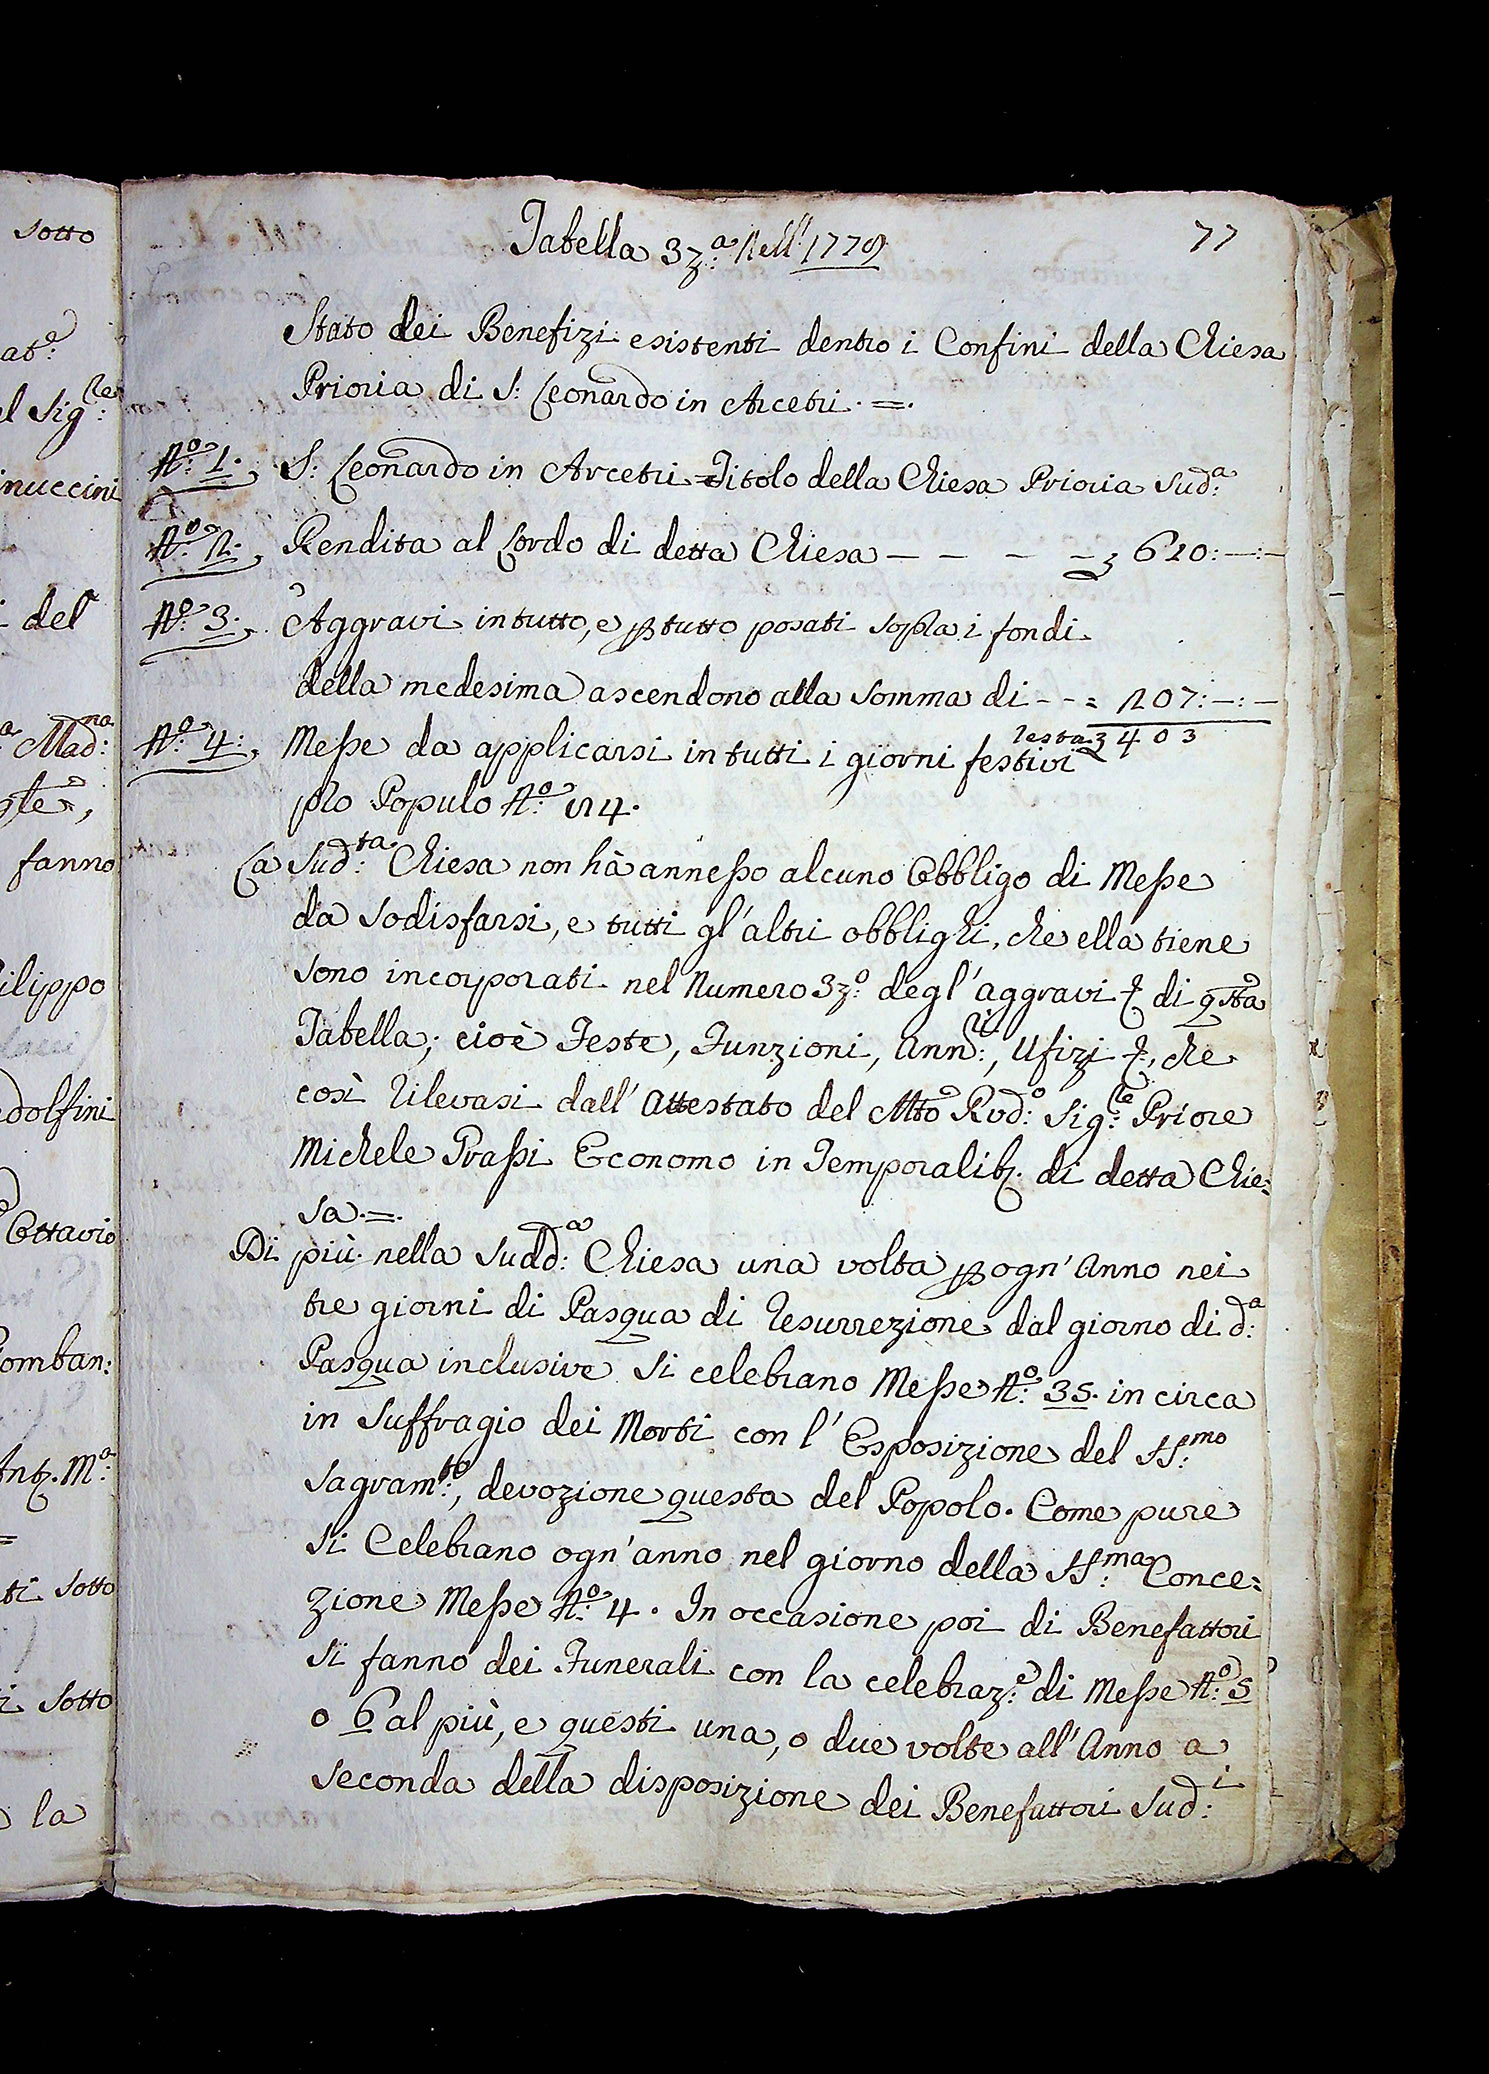 Tabella 3za: Nell' 1779
77
Stato dei Benefizi esistenti dentro i Confini della Chiesa
Prioria di S: Leonardo in Arcetri.=.
No: 1. S: Leonardo in Arcetri = Titolo della Chiesa Prioria Suda:
No: 2. Rendita al Lordo di detta Chiesa — — — — 610:—:—
No: 3. Aggravi in tutto, e p tutto posati sopra i fondi
della medesima ascendono alla Somma di - - = 207:—:—
resta 403
No: 4: Messe da applicarsi in tutti i giorni festivi
pro Populo No: 84.
La Sudta: Chiesa non hà annesso alcuno Obbligo di Messe
da Sodisfarsi, e tutti gl'altri obblighi, che ella tiene
sono incorporati nel Numero 3zo: degl'aggravi &. di qsta
Tabella; cioè Feste, Funzioni, Annri:, Ufizi &., che
così rilevasi dall'Attestato del Mto Rvdo: Sigre: Priore
Michele Grassi Economo in Temporalib. di detta Chie=
sa.=.
Di più nella Sudda: Chiesa una volta p ogn'Anno nei
tre giorni di Pasqua di Resurrezione dal giorno di da:
Pasqua inclusive Si celebrano Messe No: 35. in circa
in Suffragio dei Morti con l'Esposizione del SSmo:
Sagramto:, devozione questa del Popolo. Come pure
Si Celebrano ogn'anno nel giorno della SSma: Conce=
zione Messe No: 4. In occasione poi di Benefattori
Si fanno dei Funerali con la celebraze: di Messe No: 5
o 6 al più, e questi una, o due volte all'Anno a
Seconda della disposizione dei Benefattori Sudi:
Sotto
nuccini
del
Madna:
fanno
ilippo
dolfini
Ottavio
omban:
Ma:
ti Sotto
i Sotto
la